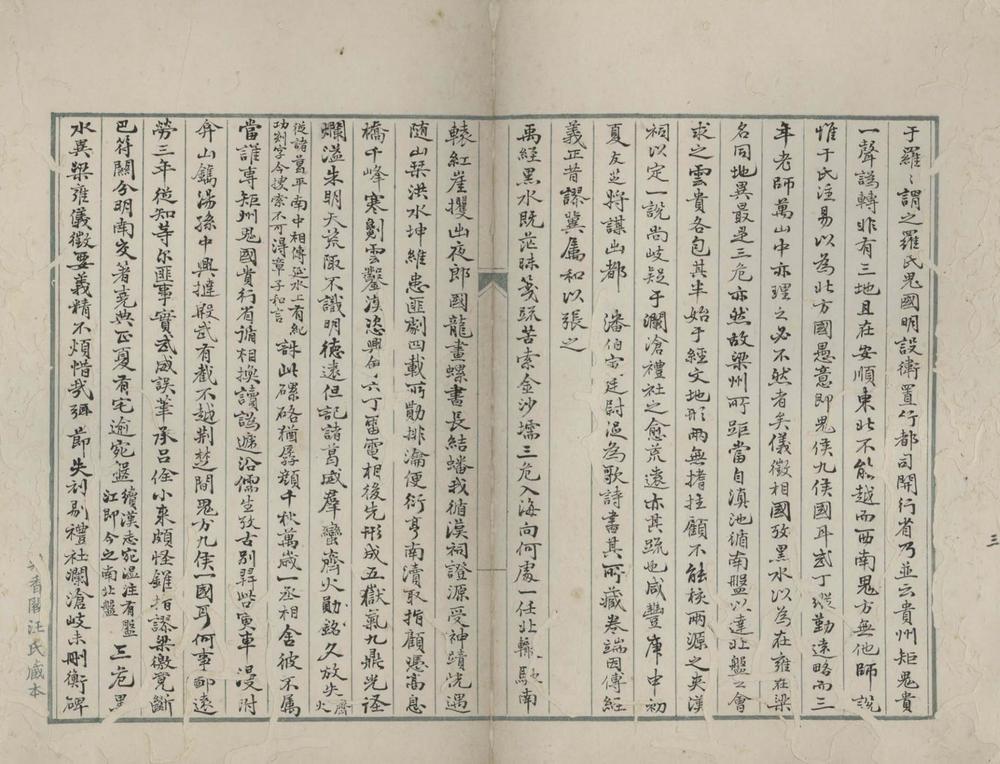 于羅〻謂之羅氏鬼國明設衛置行都司開行省乃並云貴州矩鬼貴
一聲譌轉非有三地且在安順東北不能越而西南鬼方無他師說
惟于氏注易以為北方國愚意即鬼侯九侯國耳武丁瑽勤遠略而三
年老師萬山中亦理之必不然者矣儀徵相國攷黑水以為在雍在梁
名同地異最是三危亦然故梁州所距當自滇池循南盤以達北盤之會
求之雲貴各包其半始于經文地形兩無搘拄顧不能核兩源之夾漢
祠以定一說尚岐疑于瀾滄禮社之愈荒遠亦其疏也咸豐庚申初
夏友芝將謀出都 潘伯寅廷尉過為歌詩書其所藏卷端因傅經
義正昔謬冀属和以張之
禹經黑水既茫昧箋疏苦索金沙壖三危入海向何處一任北轅駃南
轅紅崖攫出夜郎國龍畫螺書長結蟠我循漢祠證源受神蹟恍遇
随山栞洪水坤維患匪劇四載所勤排瀹便衍亨南瀆取指顧憑高息
橋千峰寒劖雲鑿滇恣興作六丁雷電相後先形成五嶽氣九鼎光怪
爛溢朱明天荒陬不識明德遠但記諸葛威羣蠻濟火勛銘久放失濟火
從諸葛平南中相傳延水上有紀
功刻字今搜索不可得章子和言
誅此磥硌猶孱顏千秋萬歲一丞相舍彼不属
當誰專矩州鬼國貴行省循相換讀譌遞沿儒生攷古別𢍰嵤寅車漫附
弇山鐫湯孫中興撻殷武有截不越荆楚間鬼方九侯一國耳何事鄙遠
勞三年從知等尔匪事實武成誤筆承呂佺小東頗怪錐指謬梁徼寬斷
巴符關分明南交著堯典正夏有宅逾宛盤
續漢志宛溫注有盤
江即今之南北盤
三危黑
水異梁雍儀徵要義精不煩惜哉弭節失刻剔禮社瀾滄岐未刪衡碑
三
香閣汪氏藏本